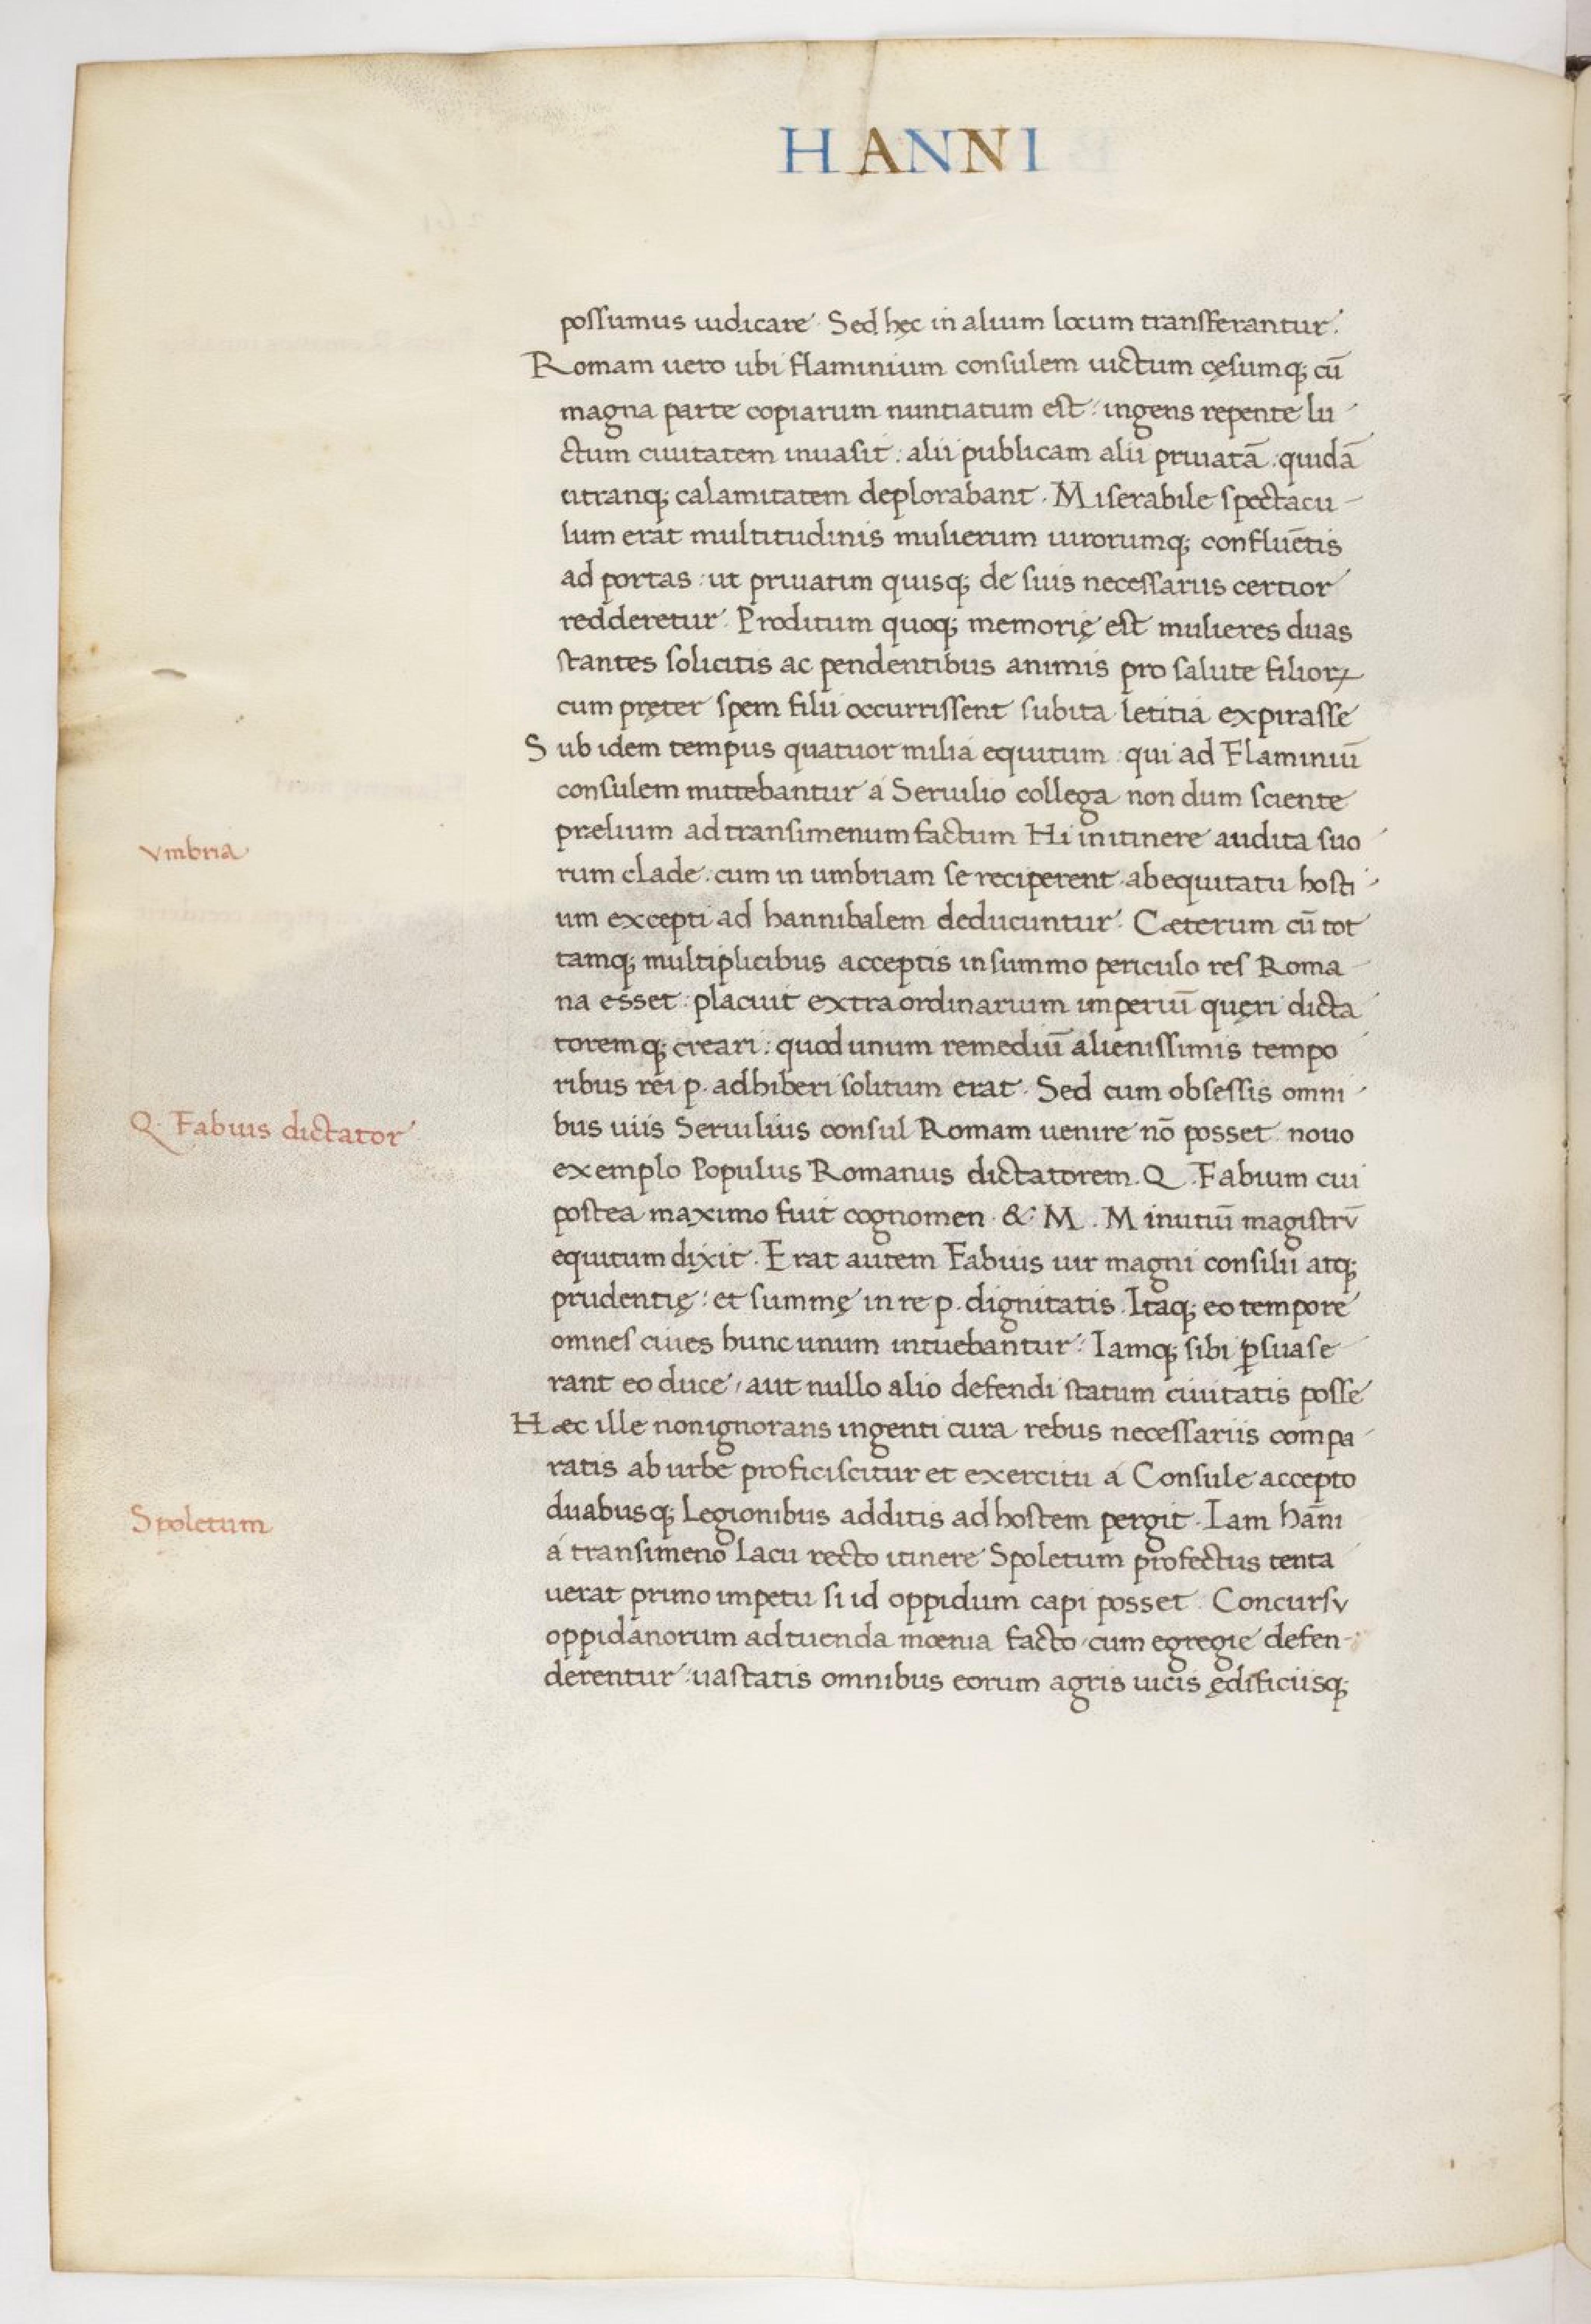 HANNI
possumus iudicare. Sed hęc in alium locum transferantur.
Romam uero ubi flaminium consulem uictum cęsumq; cū
magna parte copiarum nuntiatum est: ingens repente lu-
ctum ciuitatem inuasit: alii publicam alii priuatā: quidā
utranq; calamitatem deplorabant. Miserabile spectacu-
lum erat multitudinis mulierum uirorumq; confluētis
ad portas: ut priuatim quisq; de suis necessariis certior
redderetur. Proditum quoq; memorię est mulieres duas
stantes solicitis ac pendentibus animis pro salute filioꝝ
cum pręter spem filii occurrissent subita letitia expirasse
Sub idem tempus quatuor milia equitum: qui ad Flaminiū
consulem mittebantur á Seruilio collega non dum sciente
prælium ad transimenum factum Hi in itinere audita suo-
rum clade: cum in umbriam se reciperent ab equitatu hosti-
Vmbria
um excepti ad hannibalem deducuntur. Cæterum cū tot
tamq; multiplicibus acceptis in summo periculo res Roma-
na esset: placuit extraordinarium imperiū quęri dicta-
toremq; creari: quod unum remediū alienissimis tempo
ribus rei p. adhiberi solitum erat. Sed cum obsessis omni-
bus uiis Seruilius consul Romam uenire nō posset nouo
Q. Fabius dictator
exemplo Populus Romanus dictatorem. Q. Fabium cui
postea maximo fuit cognomen & M. Minutiū magistrū
equitum dixit. Erat autem Fabius uir magni consilii atq;
prudentię: et summę in re p. dignitatis. Itaq; eo tempore
omnes ciues hunc unum intuebantur: Iamq; sibi ꝑsuase-
rant eo duce, aut nullo alio defendi statum ciuitatis posse
Hæc ille non ignorans ingenti cura rebus necessariis compa-
ratis ab urbe proficiscitur et exercitu á Consule accepto
duabusq; Legionibus additis ad hostem pergit. Iam hāni
Spoletum
á transimeno Lacu recto itinere Spoletum profectus tenta
uerat primo impetu si id oppidum capi posset. Concursu
oppidanorum ad tuenda mœnia facto, cum egregie defen-
derentur: uastatis omnibus eorum agris uicis ędificiisq;